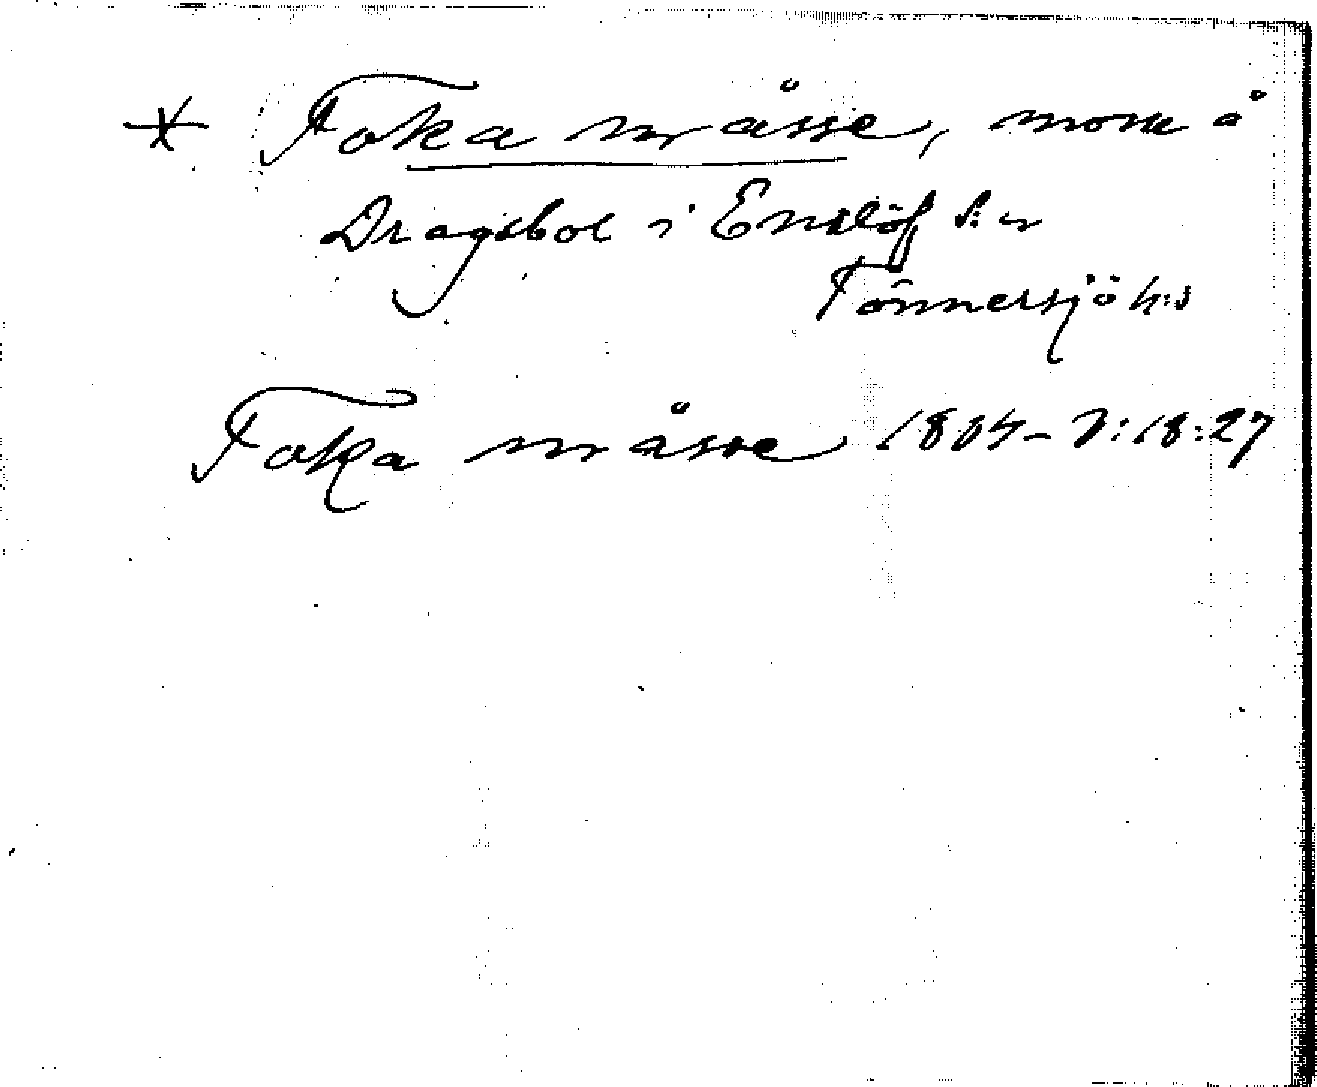 * Foka måsse, mosse å
Dragsbol i Enslöf s:n
Tönnersjö h:d
Foka måsse 1804- 7:18:27